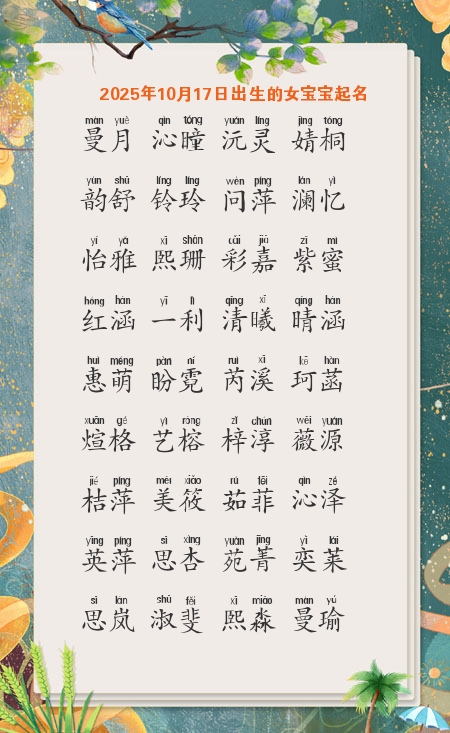 2025年10月17日出生的女宝宝起名
màn yuè qìn tóng yuán líng jìng tóng
曼月 沁曈 沅灵 婧桐
yùn shū líng líng wèn píng lán yì
韵舒 铃玲 问萍 澜忆
yí yǎ xī shān cǎi jiā zǐ mì
怡雅 熙珊 彩嘉 紫蜜
hóng hán yī lì qīng xī qíng hán
红涵 一利 清曦 晴涵
huì méng pàn ní ruì xī kē hàn
惠萌 盼霓 芮溪 珂菡
xuān gé yì róng zǐ chún wēi yuán
煊格 艺榕 梓淳 薇源
jié píng měi xiǎo rú fēi qìn zé
桔萍 美筱 茹菲 沁泽
yīng píng sī xìng yuàn jīng yì lái
英萍 思杏 苑菁 奕莱
sī lán shū fěi xī miǎo màn yú
思岚 淑斐 熙淼 曼瑜